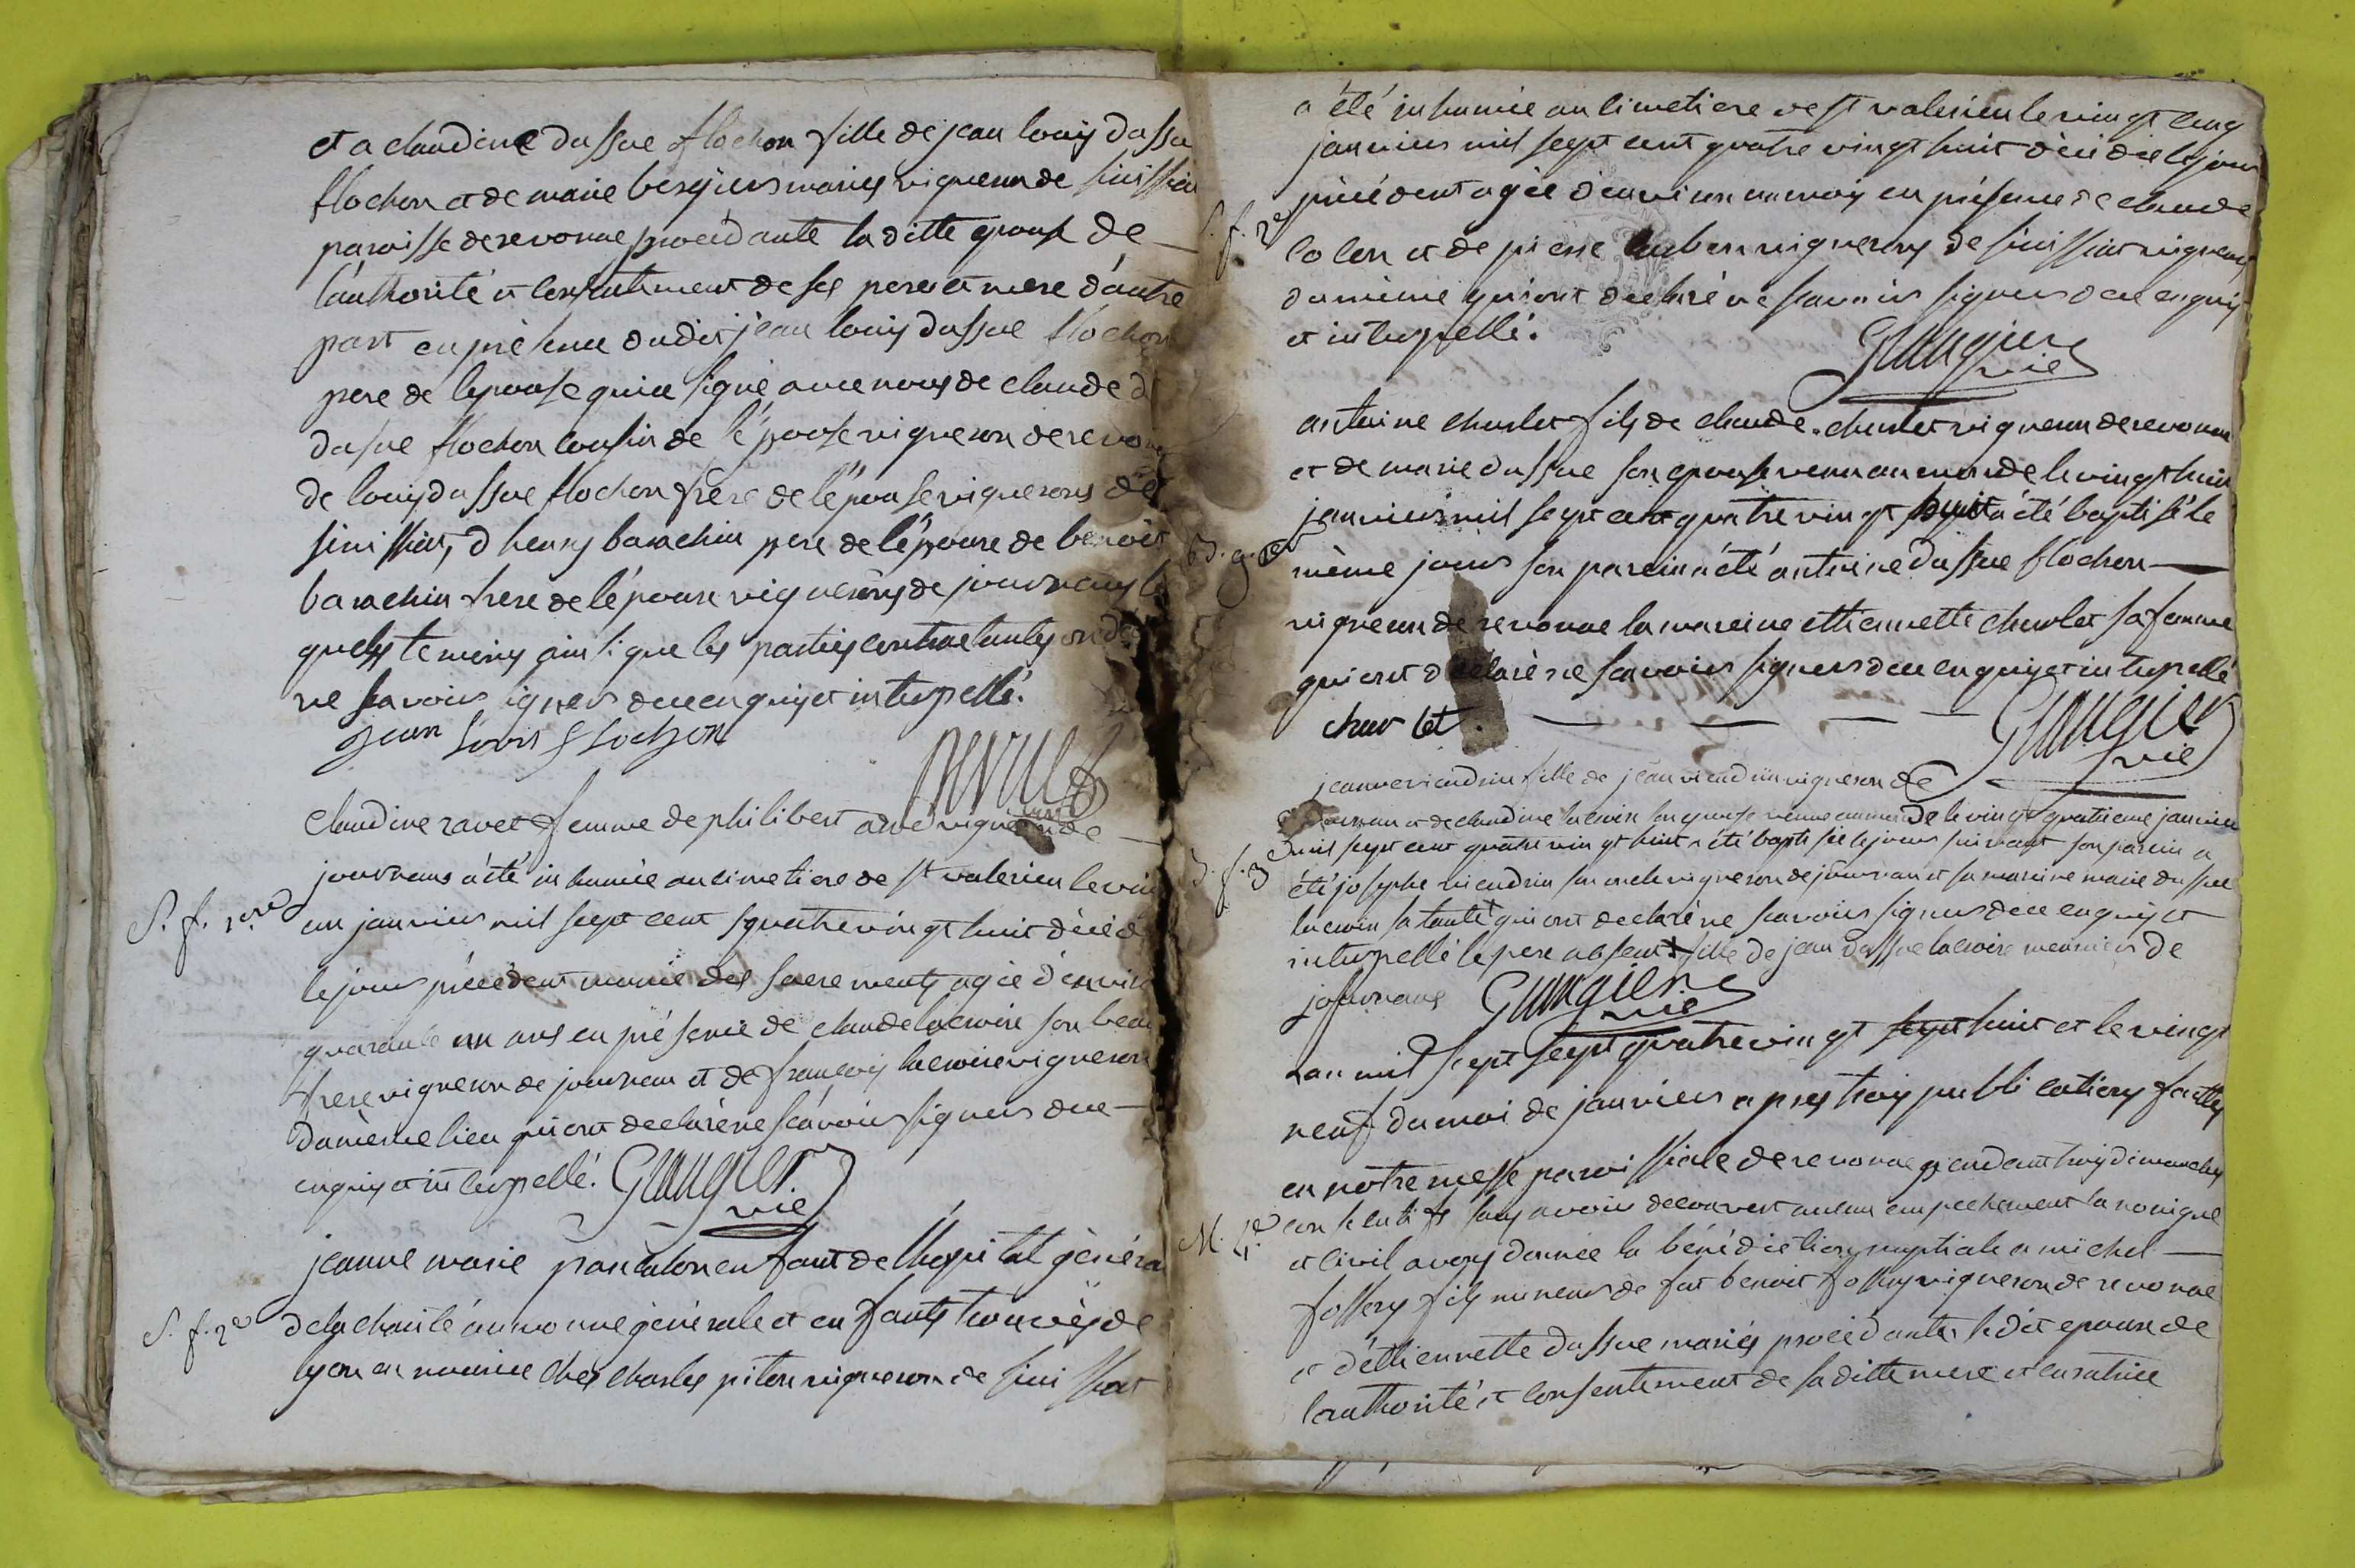 et a claudine dassue flochon fille de jean louis dassu
flochon et de marie bergiers mariés vigneron de sinissiat
paroisse de revonnas procédante la ditte epouse de
l'authorité et consentement de ses pere et mere d'autre
part en présence dudit jean louis dassue flochon
pere de lepouse qui a signé avec nous de claude
dassue flochon cousin de l'épouse vigneron de revonnas
de louis dassue flochon frere de l'épouse vignerons de
sinissiat, d henry barachin pere de l'épouse de benoit
barachin frere de l'épouse vignerons de journans les
quels temoins ainsi que les parties contractantes ont
ne scavoir signer de ce enquis et interpellé.
jean louis flochon
claudine ravet femme de philibert vigneron de
S. f. 1ere
journans a été inhumée au cimetiere de st valerien le vin
un janvier mil sept cent quatre vingt huit décédé
le jour précédent munie des sacrements agée d'environ
quarante un ans en présence de claude lacroix son beau
frere vigneron de journans et de françois lacroix vigneron
du même lieu qui ont declaré ne scavoir signer de ce
enquis et interpellé. Grangier
vic
S. f. 2e
jeanne marie pantalon enfant de l'hopital général
de la charité aumonne générale et enfants trouvés de
lyon en nourice chez charles piton vigneron de sinissiat
a été inhumée au cimetiere de st valerien le vingt cinq
janvier mil sept cent quatre vingt huit décédée le jour
S. f. 2e
précédent agée d'environ un mois en présence de claude
colon et de pierre vignerons de sinissiat vigneron
du même qui ont declaré ne scavoir signer de ce enquis
et interpellé.
Grangier
vic
antoine charlet fils de claude charlet vigneron de revonnas
et de marie dassue son epouse venu au monde le vingt huit
janvier mil sept cent quatre vingt huit a été baptisé le
B. g. 1er
même jour son parrain a été antoine dassue flochon
vigneron de revonnas la mareine ettiennette charlet sa femme
qui ont declaré ne scavoir signer de ce enquis et interpellé
charlet.
Grangier
vic
jeanne viendrin fille de jean viendrin vigneron de
journans et de claudine lacroix son epouse venue au monde le vingt quatrieme janvier
mil sept cent quatre vingt huit a été baptisée le jour suivant son parein a
B. f. 3e
été josephe viendrin son oncle vigneron de journans et sa mareine marie dassue
lacroix sa tante + qui ont declaré ne scavoir signer de ce enquis et
interpellé le pere absent + fille de jean dassue lacroix meunier de
journans Grangier
vic
lan mil sept sept quatre vingt sept huit et le vingt
neuf du moi de janvier apres trois publications faittes
en notre messe paroissiale de revonnas pendant trois dimanches
M. 4e
consecutifs sans avoir decouvert aucun empechement canonique
et civil avons donnée la bénédiction nuptiale a michel
fossery fils mineur de fut benoit fossery vigneron de revonnas
et d'ettiennette dassue mariés procédante le dit epoux de
l'authorité et consentement de sa ditte mere et curatrice